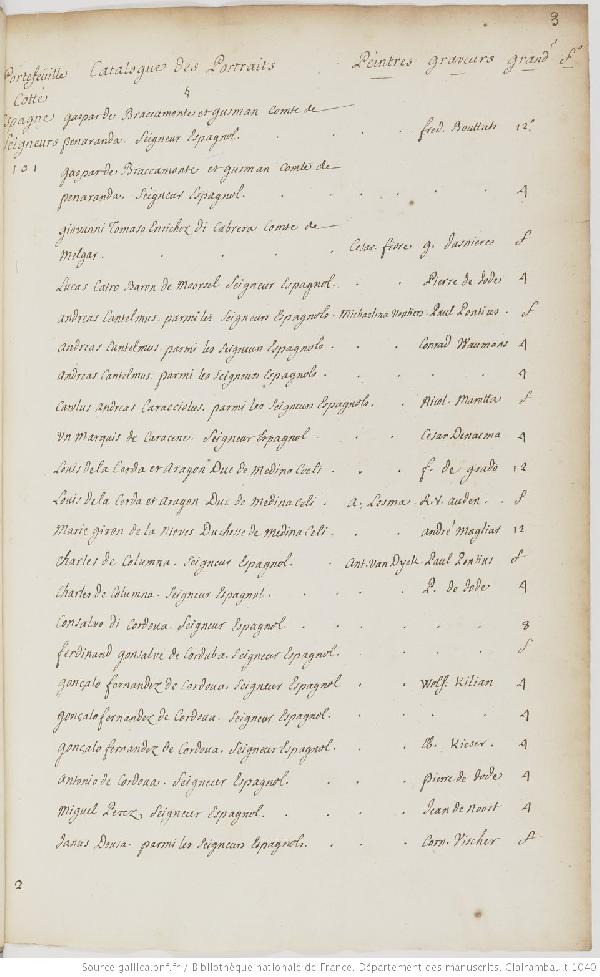 3
Portefeuille Catalogue des Portraits Peintres graveurs grand.r f.o
Cotté
Espagne gaspar de Braccamonte et gusman Comte de
Seigneurs penaranda. Seigneur Espagnol. fred. Bouttats 12.
101 gaspar de Braccamonte et gusman Comte de
penaranda. Seigneur Espagnol. 4
giovanni Tomaso Enrichez di Cabrera Comte de
Melgar. Cesar. fiore g. dasnieres f
Lucas Cairo Baron de Moorsel Seigneur Espagnol. Pierre de Jode 4
Andreas Cantelmus. parmi les Seigneurs Espagnols. Paul Pontius. f
Andreas Cantelmus. parmi les Seigneurs Espagnols. Conrad Waumans 4
Andreas Cantelmus. parmi les Seigneurs Espagnols. 4
Carolus Andreas Caracciolus. parmi les Seigneurs Espagnols. Nicol. Marotta f
Un Marquis de Caracene. Seigneur Espagnol. Cesar Denacma 4
Louis de la Cerda et Aragon Duc de Medina Coeli. f. de grado 12
Louis de la Cerda et Aragon Duc de Medina Celi. A. Lesma R. V. auden. f
Marie giron de la Nieves Duchesse de Medina Celi. André Magliar 12
Charles de Columna. Seigneur Espagnol. Ant. Van Dyck Paul Pontius f
Charles de Columna. Seigneur Espagnol. P. de Jode 4
Consalvo di Cordova. Seigneur Espagnol. 8
ferdinand gonsalve de Corduba. Seigneur Espagnol. f
gonçalo fernandez de Cordova. Seigneur Espagnol. Wolf. Kilian 4
gonçalo fernandez de Cordova. Seigneur Espagnol. 4
gonçalo fernandez de Cordova. Seigneur Espagnol. Kieser. 4
Antonio de Cordova. Seigneur Espagnol. pierre de Jode 4
Miguel Perez, Seigneur Espagnol. Jean de Noort 4
Janus Dousa. parmi les Seigneurs Espagnols. Corn. Vischer f
2
Source gallica.bnf.fr / Bibliothèque nationale de France. Département des manuscrits. Clairambault 1040